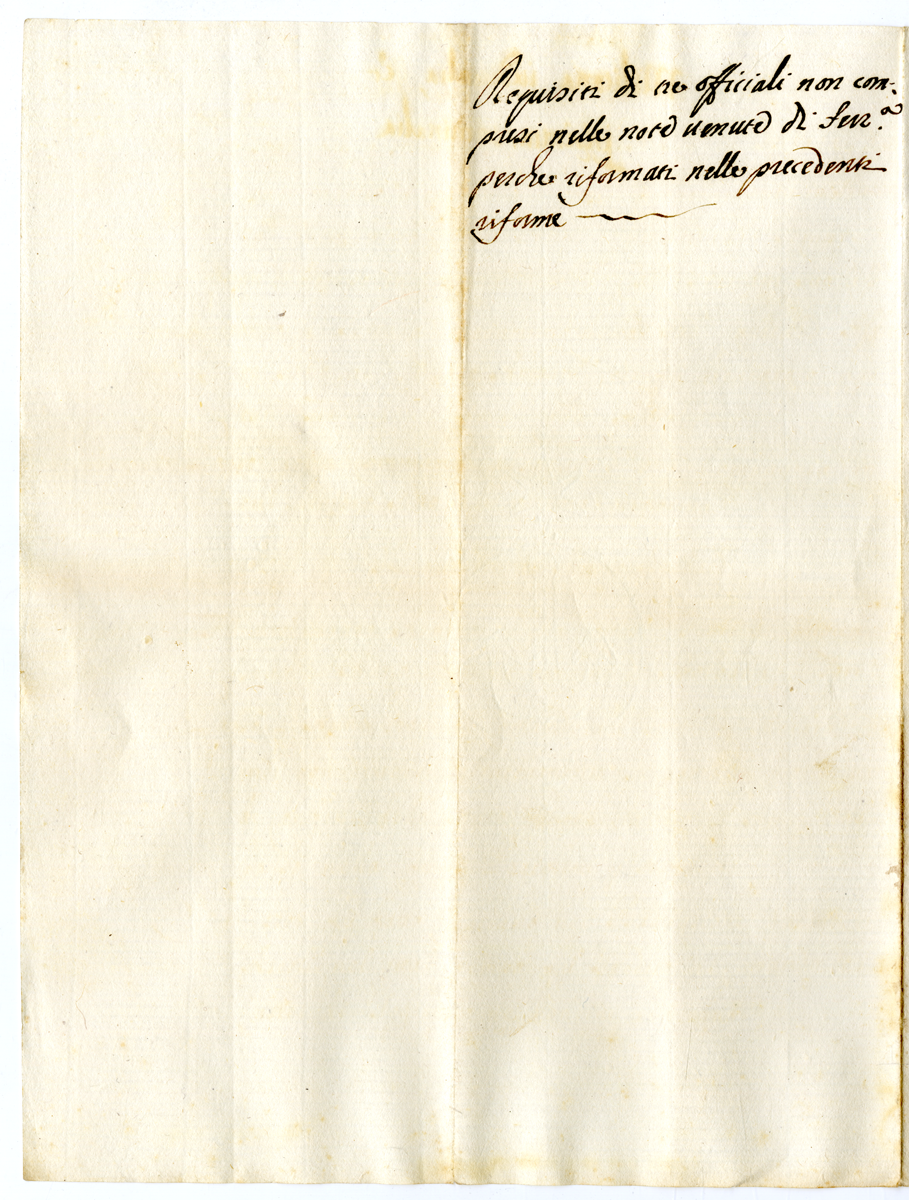 Requisiti di tre officiali non com-
presi nelle note venute di Ferr.a
perche riformati nelle precedenti
riforme